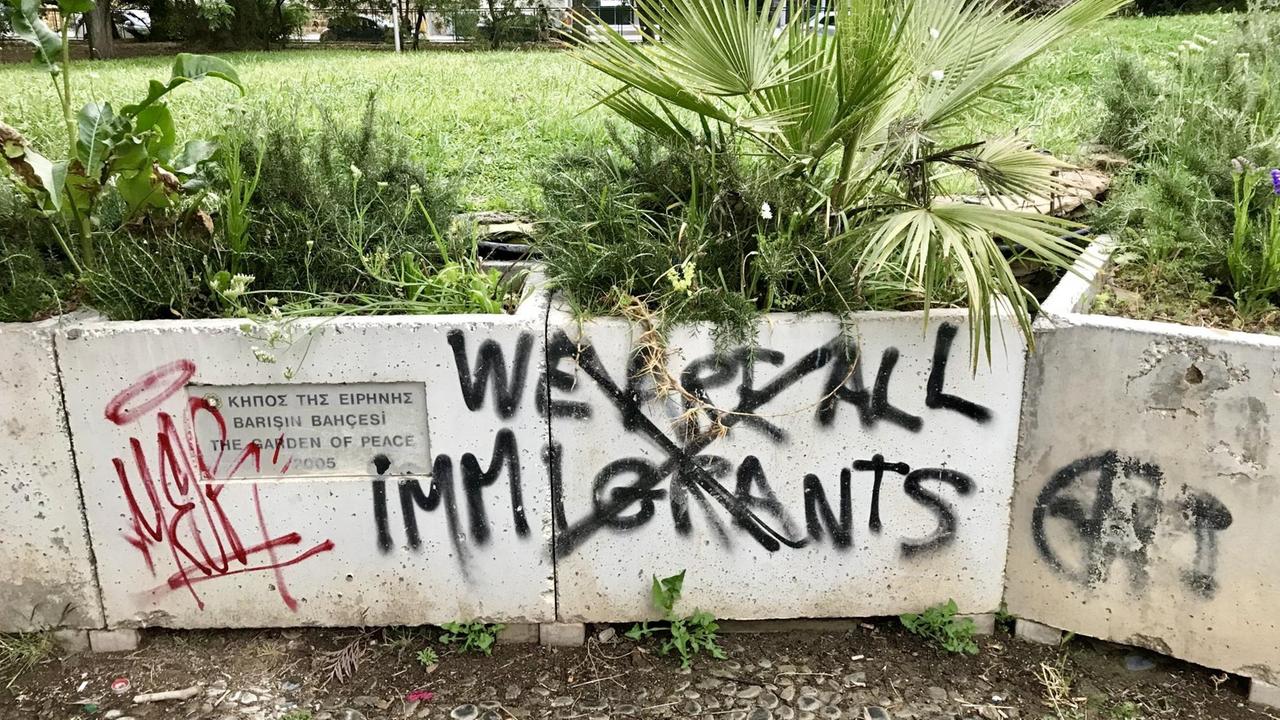 ΚΗΠΟΣ ΤΗΣ ΕΙΡΗΝΗΣ
BARIŞIN BAHÇESİ
THE GARDEN OF PEACE
2005
WE ARE ALL
IMMIGRANTS